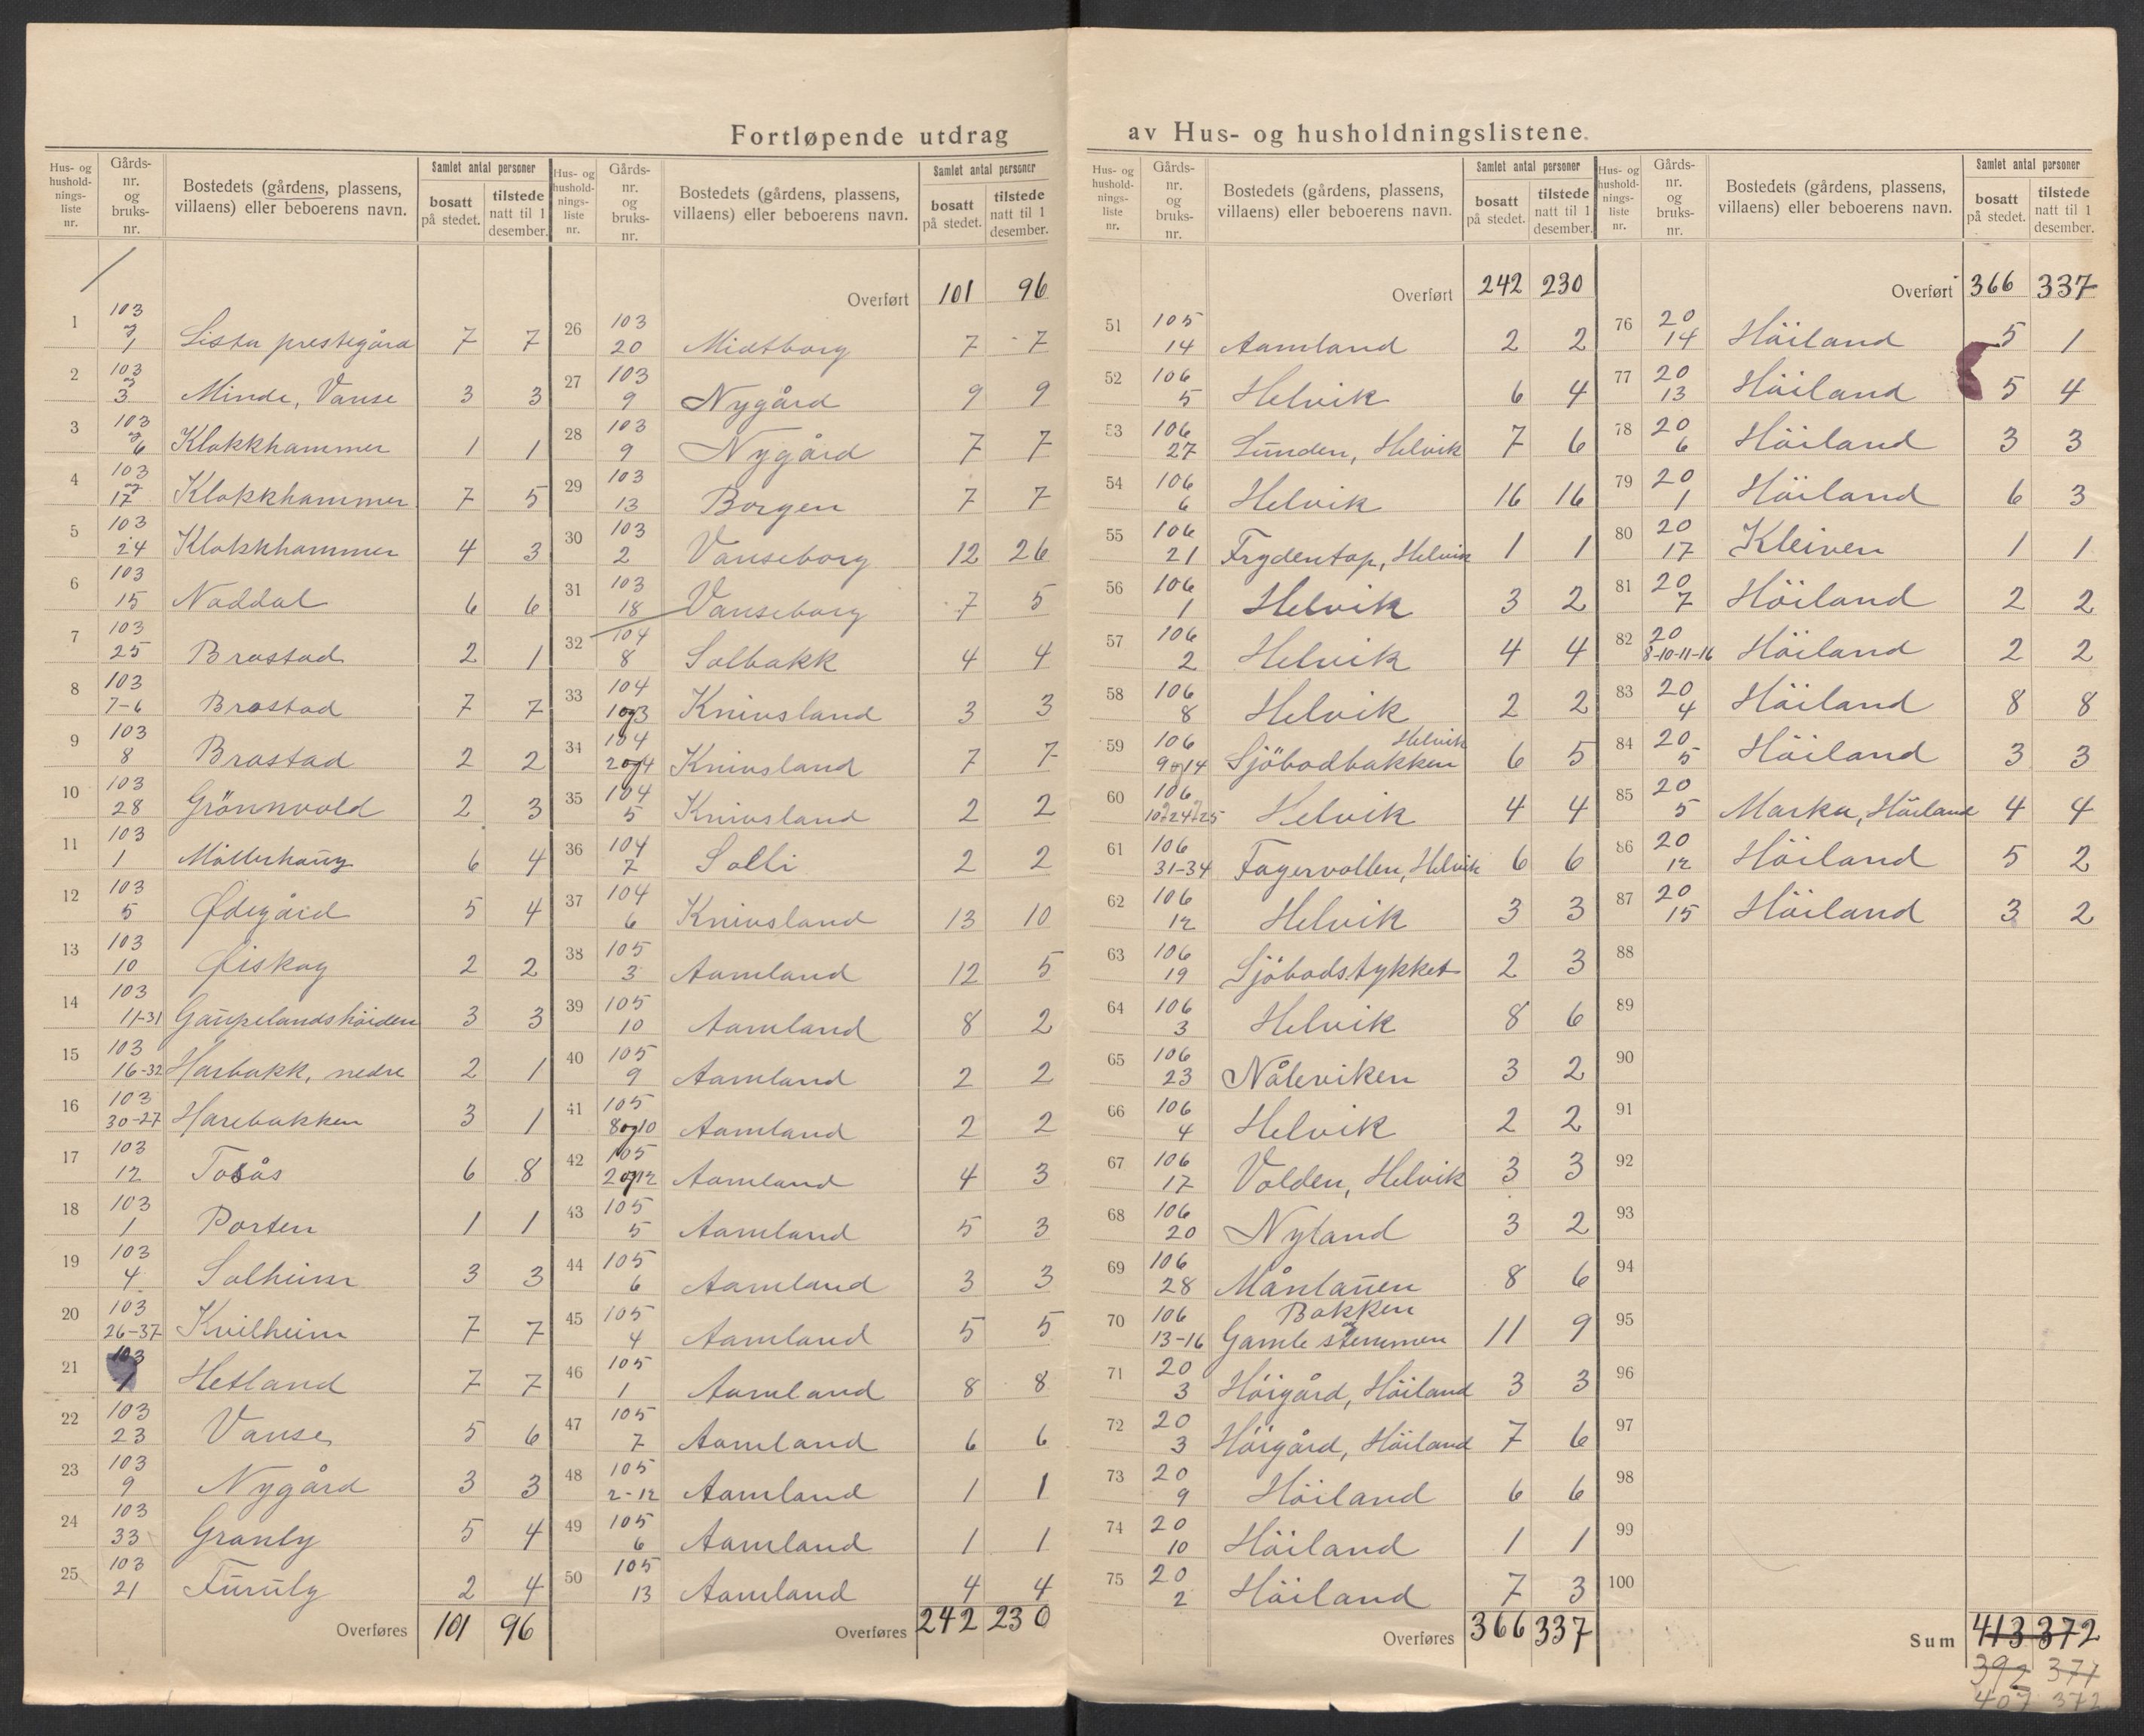 Fortløpende utdrag av Hus- og husholdningslistene.
Hus- og husholdningsliste nr. | Gårds-nr. og bruks-nr. | Bostedets (gårdens, plassens, villaens) eller beboerens navn. | Samlet antal personer | bosatt på stedet. | tilstede natt til 1 desember.
1 | 103 1 | Lista prestegård | 7 | 7
2 | 103 3 | Minde, Vanse | 3 | 3
3 | 103 6 | Klokkhammer | 1 | 1
4 | 103 17 | Klokkhammer | 7 | 5
5 | 103 24 | Klokkhammer | 4 | 3
6 | 103 15 | Noddal | 6 | 6
7 | 103 25 | Brastad | 2 | 1
8 | 103 7-6 | Brastad | 7 | 7
9 | 103 8 | Brastad | 2 | 2
10 | 103 28 | Grönnvold | 2 | 3
11 | 103 1 | Möllerhaug | 6 | 4
12 | 103 5 | Ødegård | 5 | 4
13 | 103 10 | Øiskog | 2 | 2
14 | 103 11-31 | Gaupelandshöiden | 3 | 3
15 | 103 16-32 | Harbakk, nedre | 2 | 1
16 | 103 30-27 | Harebakken | 3 | 1
17 | 103 12 | Toåås | 6 | 8
18 | 103 1 | Porten | 1 | 1
19 | 103 4 | Solheim | 3 | 3
20 | 103 26-37 | Kvilheim | 7 | 7
21 | 103 1 | Hetland | 7 | 7
22 | 103 23 | Vanse | 5 | 6
23 | 103 9 | Nygård | 3 | 3
24 | 103 33 | Granly | 5 | 4
25 | 103 21 | Furuly | 2 | 4
Overføres 101 96
Hus- og husholdningsliste nr. | Gårds-nr. og bruks-nr. | Bostedets (gårdens, plassens, villaens) eller beboerens navn. | Samlet antal personer | bosatt på stedet. | tilstede natt til 1 desember.
Overført 101 96
26 | 103 20 | Midtborg | 7 | 7
27 | 103 9 | Nygård | 9 | 9
28 | 103 9 | Nygård | 7 | 7
29 | 103 13 | Borgen | 7 | 7
30 | 103 2 | Vanseborg | 12 | 26
31 | 103 18 | Vanseborg | 7 | 5
32 | 104 8 | Solbakk | 4 | 4
33 | 104 1og3 | Knivsland | 3 | 3
34 | 104 2og4 | Knivsland | 7 | 7
35 | 104 5 | Knivsland | 2 | 2
36 | 104 7 | Solli | 2 | 2
37 | 104 6 | Knivsland | 13 | 10
38 | 105 3 | Aamland | 12 | 5
39 | 105 10 | Aamland | 8 | 2
40 | 105 9 | Aamland | 2 | 2
41 | 105 8og10 | Aamland | 2 | 2
42 | 105 2og12 | Aamland | 4 | 3
43 | 105 5 | Aamland | 5 | 3
44 | 105 6 | Aamland | 3 | 3
45 | 105 4 | Aamland | 5 | 5
46 | 105 1 | Aamland | 8 | 8
47 | 105 7 | Aamland | 6 | 6
48 | 105 2-12 | Aamland | 1 | 1
49 | 105 6 | Aamland | 1 | 1
50 | 105 13 | Aamland | 4 | 4
Overføres 242 230
Hus- og husholdningsliste nr. | Gårds-nr. og bruks-nr. | Bostedets (gårdens, plassens, villaens) eller beboerens navn. | Samlet antal personer | bosatt på stedet. | tilstede natt til 1 desember.
Overført 242 230
51 | 105 14 | Aamland | 2 | 2
52 | 106 5 | Helvik | 6 | 4
53 | 106 27 | Lunden, Helvik | 7 | 6
54 | 106 6 | Helvik | 16 | 16
55 | 106 21 | Frydentop, Helvik | 1 | 1
56 | 106 1 | Helvik | 3 | 2
57 | 106 2 | Helvik | 4 | 4
58 | 106 8 | Helvik | 2 | 2
59 | 106 9og14 | Sjöbodbakken Helvik | 6 | 5
60 | 106 10+24+25 | Helvik | 4 | 4
61 | 106 31-34 | Fagervollen, Helvik | 6 | 6
62 | 106 12 | Helvik | 3 | 3
63 | 106 19 | Sjöbodstykket | 2 | 3
64 | 106 3 | Helvik | 8 | 6
65 | 106 23 | Nåleviken | 3 | 2
66 | 106 4 | Helvik | 2 | 2
67 | 106 17 | Volden, Helvik | 3 | 3
68 | 106 20 | Nyland | 3 | 2
69 | 106 28 | Månlauen | 8 | 6
70 | 106 13-16 | Bakken og Gamle stemmen | 11 | 9
71 | 20 3 | Höigård, Höiland | 3 | 3
72 | 20 3 | Höigård, Höiland | 7 | 6
73 | 20 9 | Höiland | 6 | 6
74 | 20 10 | Höiland | 1 | 1
75 | 20 2 | Höiland | 7 | 3
Overføres 366 337
Hus- og husholdningsliste nr. | Gårds-nr. og bruks-nr. | Bostedets (gårdens, plassens, villaens) eller beboerens navn. | Samlet antal personer | bosatt på stedet. | tilstede natt til 1 desember.
Overført 366 337
76 | 20 14 | Höiland | 5 | 1
77 | 20 13 | Höiland | 5 | 4
78 | 20 6 | Höiland | 3 | 3
79 | 20 1 | Höiland | 6 | 3
80 | 20 17 | Kleiven | 1 | 1
81 | 20 7 | Höiland | 2 | 2
82 | 20 8-10-11-16 | Höiland | 2 | 2
83 | 20 4 | Höiland | 8 | 8
84 | 20 5 | Höiland | 3 | 3
85 | 20 5 | Marka, Höiland | 4 | 4
86 | 20 12 | Höiland | 5 | 2
87 | 20 15 | Höiland | 3 | 2
88
89
90
91
92
93
94
95
96
97
98
99
100
Sum 413 372
392 371
407 372